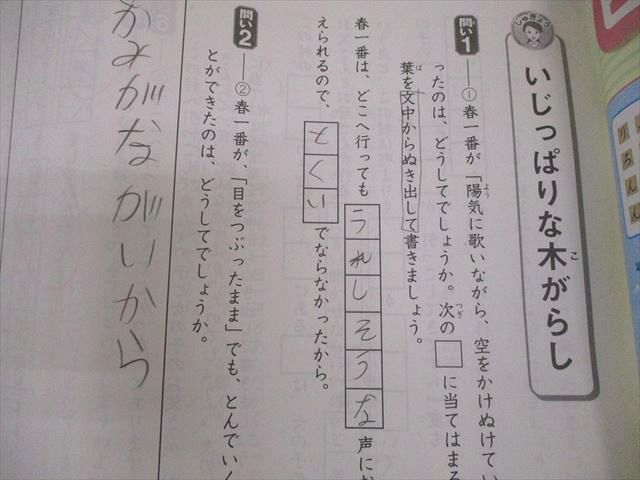 じゅぎょう
いじっぱりな木がらし
こ
問い1 ① 春一番が「陽気に歌いながら、空をかけぬけてい
よう
ったのは、どうしてでしょうか。次の□に当てはまる
つぎ
葉を文中からぬき出して書きましょう。
ば
春一番は、どこへ行ってもうれしそうな声にむ
えられるので、とくいでならなかったから。
問い2 ② 春一番が、「目をつぶったまま」でも、とんでいく
とができたのは、どうしてでしょうか。
かみがながいから